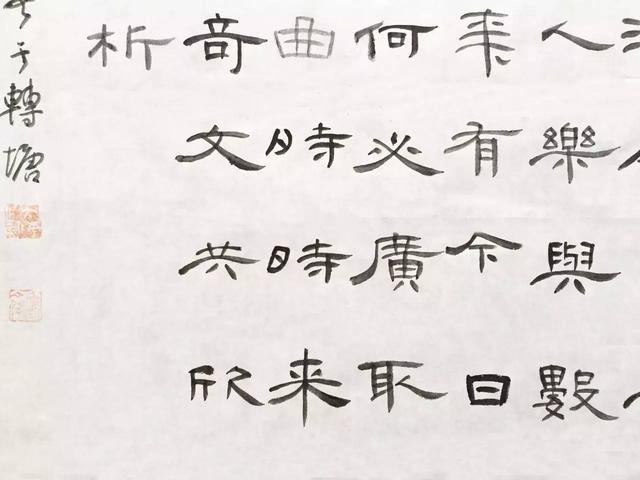 人樂與數
年有今日
何必廣取
曲時時来
奇文共欣
析
于轉塘